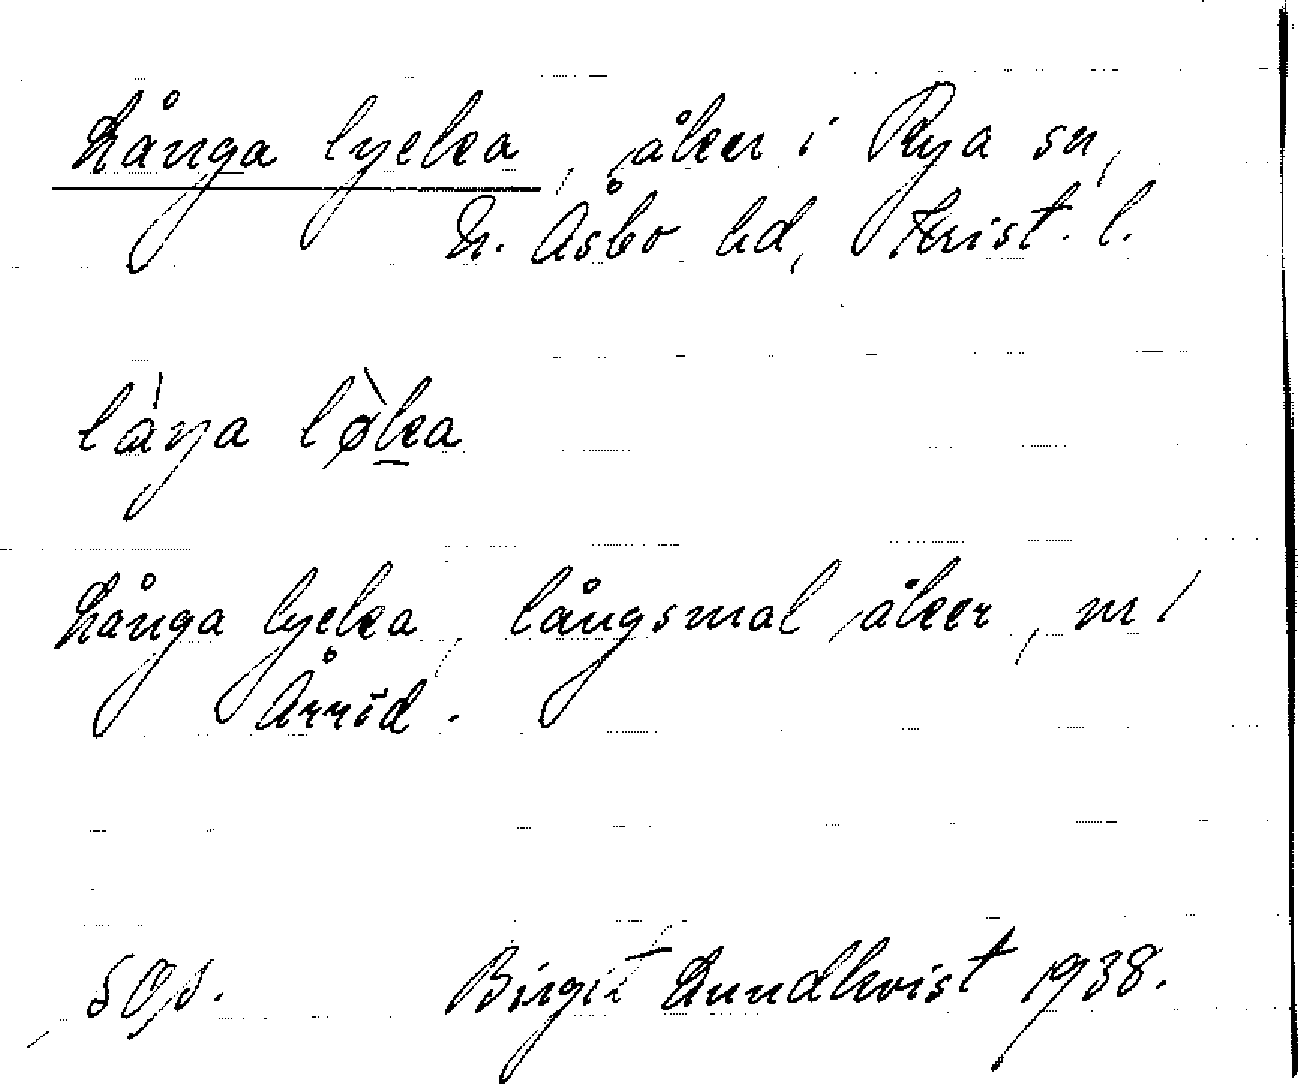 Långa lycka, åker i Rya sn,
N. Åsbo hd, Krist. l.
låŋa løka
Långa lycka, långsmal åker, m /
Årröd.
Birgit Lundkvist 1938.